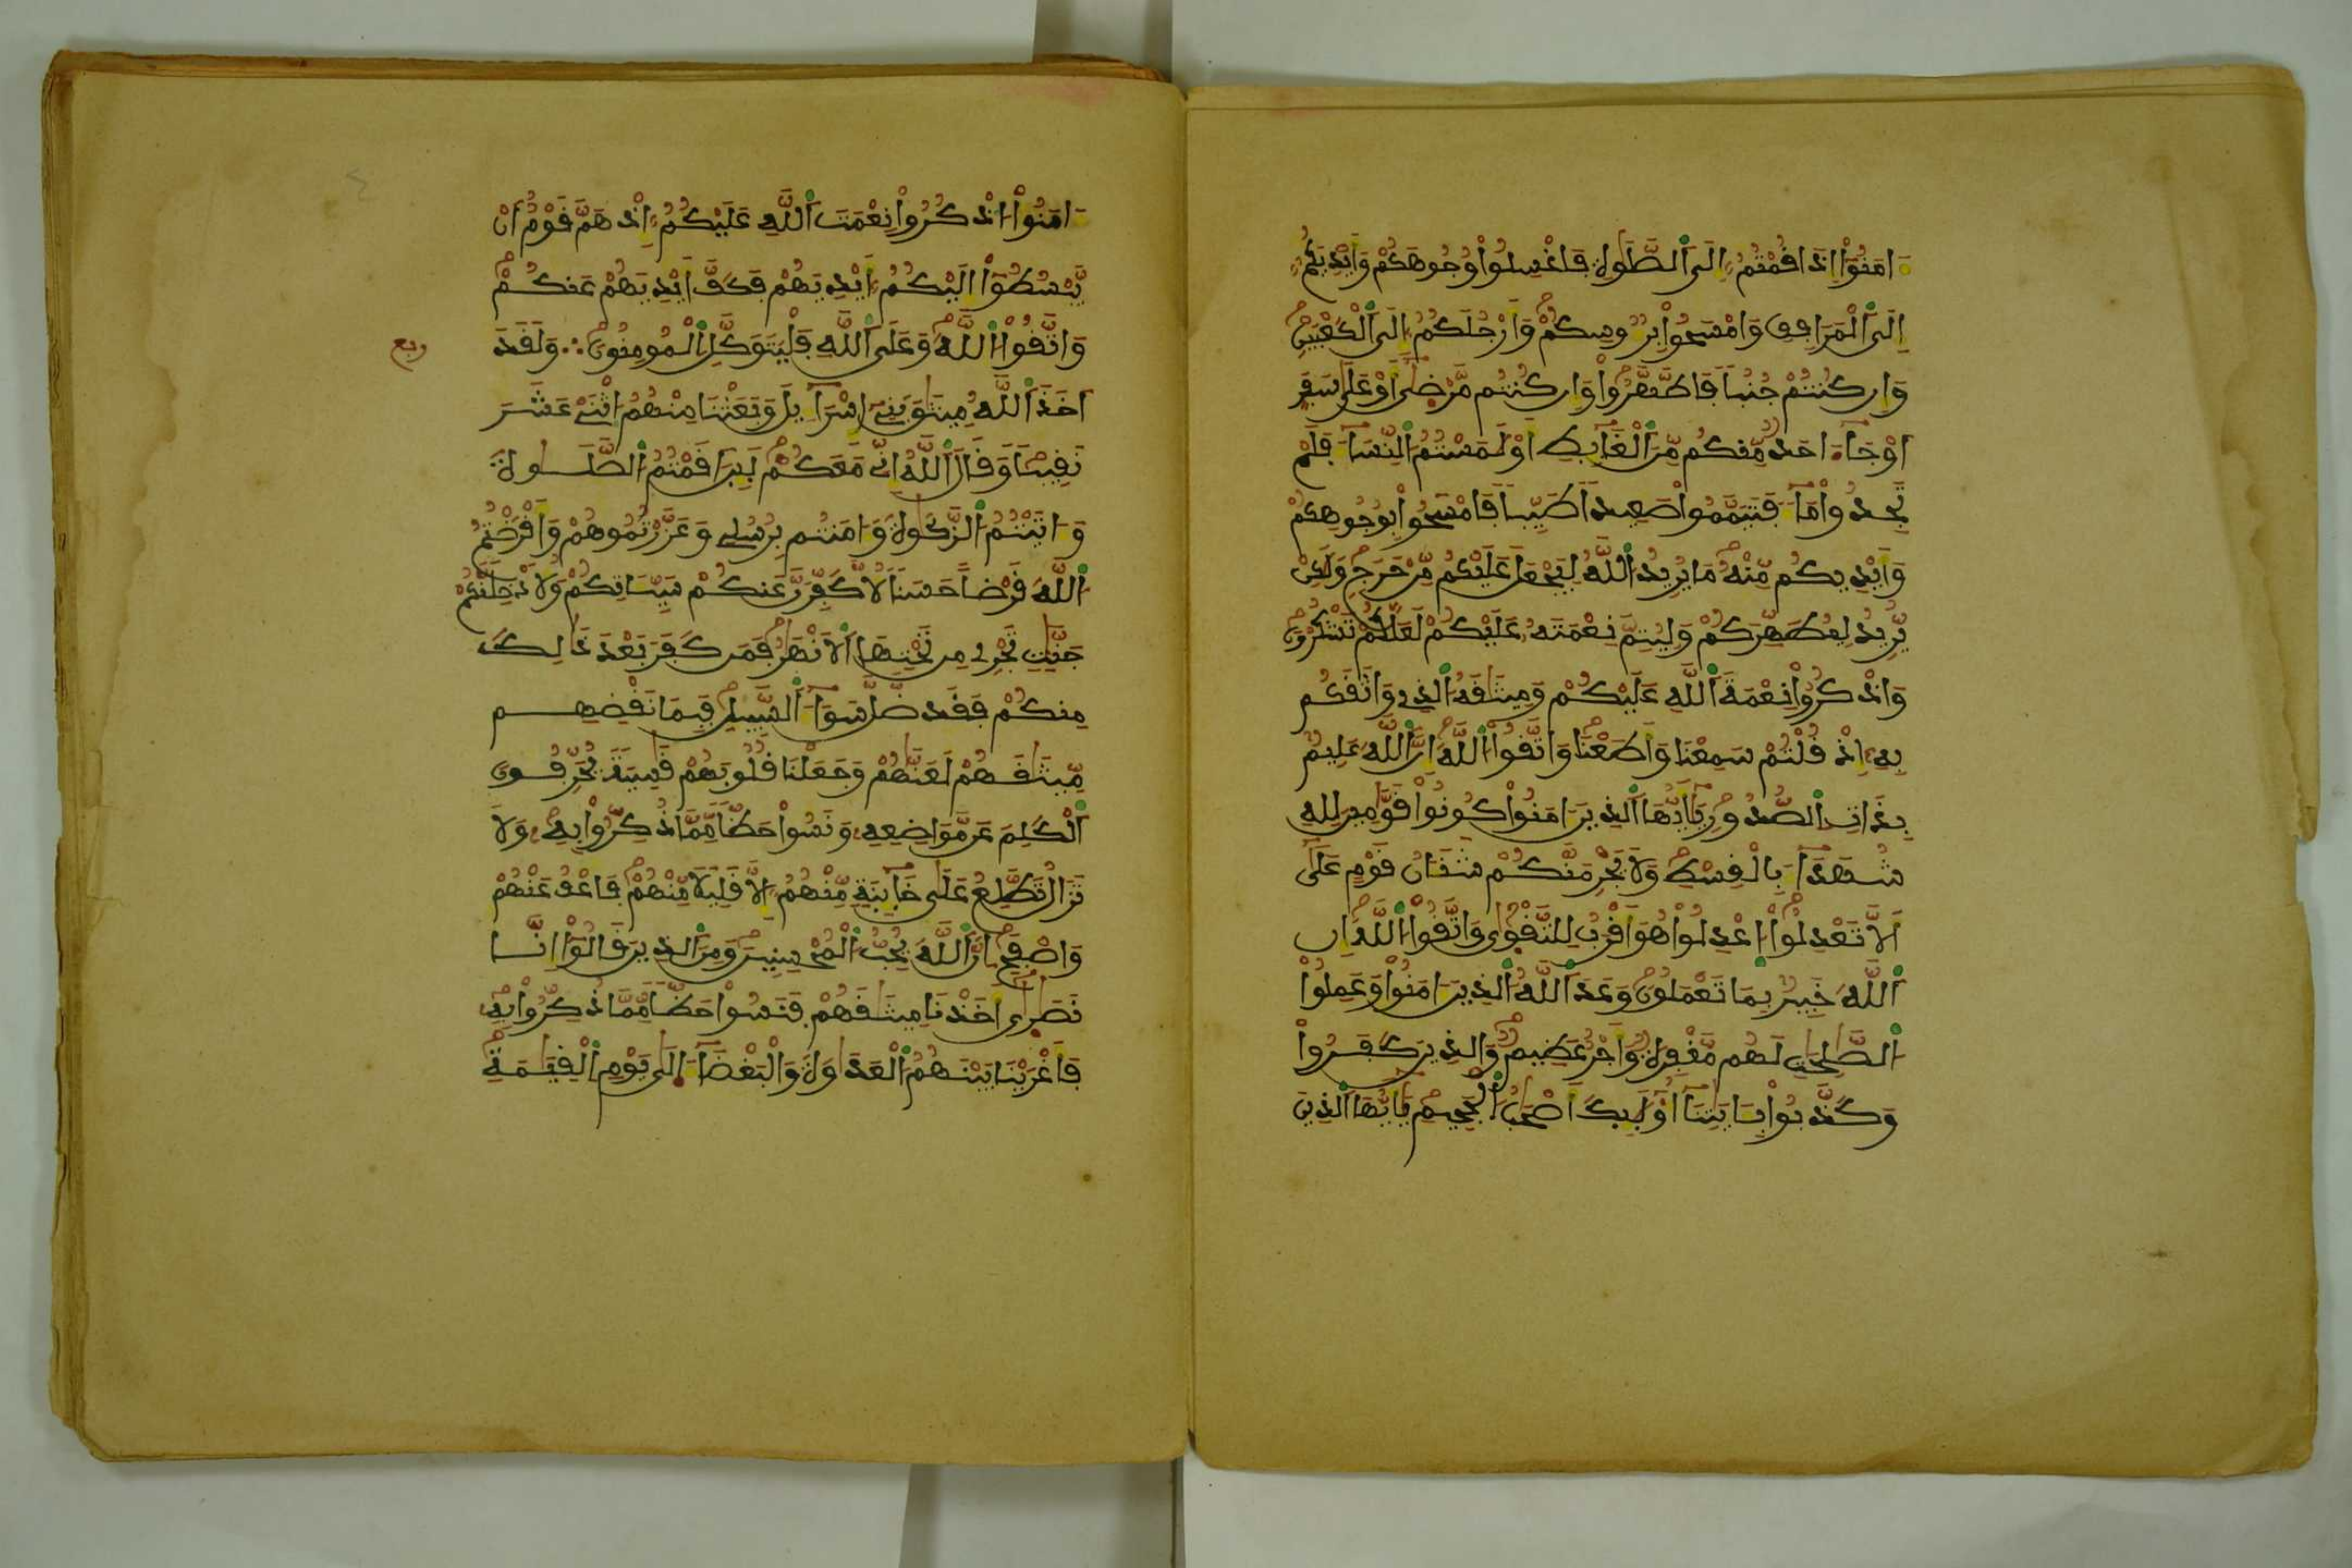 ءَامَنُوٓاْ إِذَا قُمْتُمُۥٓ إِلَى اَ۬لصَّلَوٰةِ فَاغْسِلُواْ وُجُوهَكُمْ وَأَيْدِيَكُمُۥٓ
إِلَى اَ۬لْمَرَافِقِ وَامْسَحُواْ بِرُءُوسِكُمْ وَأَرْجُلَكُمُۥٓ إِلَى اَ۬لْكَعْبَيْنِ
وَإِن كُنتُمْ جُنُباً فَاطَّهَّرُواْ وَإِن كُنتُم مَّرْضَىٰٓ أَوْ عَلَىٰ سَفَرٍ
أَوْ جَآءَ احَدٌ مِّنكُم مِّنَ اَ۬لْغَآئِطِ أَوْ لَٰمَسْتُمُ اُ۬لنِّسَآءَ فَلَمْ
تَجِدُواْ مَآءً فَتَيَمَّمُواْ صَعِيداً طَيِّباً فَامْسَحُواْ بِوُجُوهِكُمْ
وَأَيْدِيكُم مِّنْهُ مَا يُرِيدُ اُ۬للَّهُ لِيَجْعَلَ عَلَيْكُم مِّنْ حَرَجٍ وَلَٰكِنْ
يُّرِيدُ لِيُطَهِّرَكُمْ وَلِيُتِمَّ نِعْمَتَهُۥ عَلَيْكُمْ لَعَلَّكُمْ تَشْكُرُونَ
وَاذْكُرُواْ نِعْمَةَ اَ۬للَّهِ عَلَيْكُمْ وَمِيثَٰقَهُ اُ۬لذِے وَاثَقَكُم
بِهِۦٓ إِذْ قُلْتُمْ سَمِعْنَا وَأَطَعْنَا وَاتَّقُواْ اُ۬للَّهَ إِنَّ اَ۬للَّهَ عَلِيمٌ
بِذَاتِ اِ۬لصُّدُورِ يَٰٓأَيُّهَا اَ۬لذِينَ ءَامَنُواْ كُونُواْ قَوَّٰمِينَ لِلهِ
شُهَدَآءَ بِالْقِسْطِ وَلَا يَجْرِمَنَّكُمْ شَنَـَٔانُ قَوْمٍ عَلَىٰٓ
أَلَّا تَعْدِلُواْ اُ۪عْدِلُواْ هُوَ أَقْرَبُ لِلتَّقْوَىٰ وَاتَّقُواْ اُ۬للَّهَ إِنَّ
اَ۬للَّهَ خَبِيرٌ بِمَا تَعْمَلُونَ وَعَدَ اَ۬للَّهُ اُ۬لذِينَ ءَامَنُواْ وَعَمِلُواْ
اُ۬لصَّٰلِحَٰتِ لَهُم مَّغْفِرَةٌ وَأَجْرٌ عَظِيمٌ وَالذِينَ كَفَرُواْ
وَكَذَّبُواْ بِـَٔايَٰتِنَآ أُوْلَٰٓئِكَ أَصْحَٰبُ اُ۬لْجَحِيمِ يَٰٓأَيُّهَا اَ۬لذِينَ
ءَامَنُواْ اُ۟ذْكُرُواْ نِعْمَتَ اَ۬للَّهِ عَلَيْكُمُۥٓ إِذْ هَمَّ قَوْمٌ أَنْ
يَّبْسُطُوٓاْ إِلَيْكُمُۥٓ أَيْدِيَهُمْ فَكَفَّ أَيْدِيَهُمْ عَنكُمْ
وَاتَّقُواْ اُ۬للَّهَ وَعَلَى اَ۬للَّهِ فَلْيَتَوَكَّلِ اِ۬لْمُومِنُونَ ∴ وَلَقَدَ
ربع
اَخَذَ اَ۬للَّهُ مِيثَٰقَ بَنِےٓ إِسْرَآءِيلَ وَبَعَثْنَا مِنْهُمُ اُ۪ثْنَےْ عَشَرَ
نَقِيباً وَقَالَ اَ۬للَّهُ إِنِّے مَعَكُمْ لَئِنَ اَقَمْتُمُ اُ۬لصَّلَوٰةَ
وَءَاتَيْتُمُ اُ۬لزَّكَوٰةَ وَءَامَنتُم بِرُسُلِے وَعَزَّرْتُمُوهُمْ وَأَقْرَضْتُمُ
اُ۬للَّهَ قَرْضاً حَسَناً لَّأُكَفِّرَنَّ عَنكُمْ سَيِّـَٔاتِكُمْ وَلَأُدْخِلَنَّكُمْ
جَنَّٰتٍ تَجْرِے مِن تَحْتِهَا اَ۬لْأَنْهَٰرُ فَمَن كَفَرَ بَعْدَ ذَٰلِكَ
مِنكُمْ فَقَد ضَّلَّ سَوَآءَ اَ۬لسَّبِيلِ فَبِمَا نَقْضِهِم
مِّيثَٰقَهُمْ لَعَنَّٰهُمْ وَجَعَلْنَا قُلُوبَهُمْ قَٰسِيَةً يُحَرِّفُونَ
اَ۬لْكَلِمَ عَن مَّوَاضِعِهِۦ وَنَسُواْ حَظّاً مِّمَّا ذُكِّرُواْ بِهِۦ وَلَا
تَزَالُ تَطَّلِعُ عَلَىٰ خَآئِنَةٍ مِّنْهُمُۥٓ إِلَّا قَلِيلًا مِّنْهُمْ فَاعْفُ عَنْهُمْ
وَاصْفَحِ اِنَّ اَ۬للَّهَ يُحِبُّ اُ۬لْمُحْسِنِينَ وَمِنَ اَ۬لذِينَ قَالُوٓاْ إِنَّا
نَصَٰرَىٰٓ أَخَذْنَا مِيثَٰقَهُمْ فَنَسُواْ حَظّاً مِّمَّا ذُكِّرُواْ بِهِۦ
فَأَغْرَيْنَا بَيْنَهُمُ اُ۬لْعَدَٰوَةَ وَالْبَغْضَآءَ اِلَىٰ يَوْمِ اِ۬لْقِيَٰمَةِ